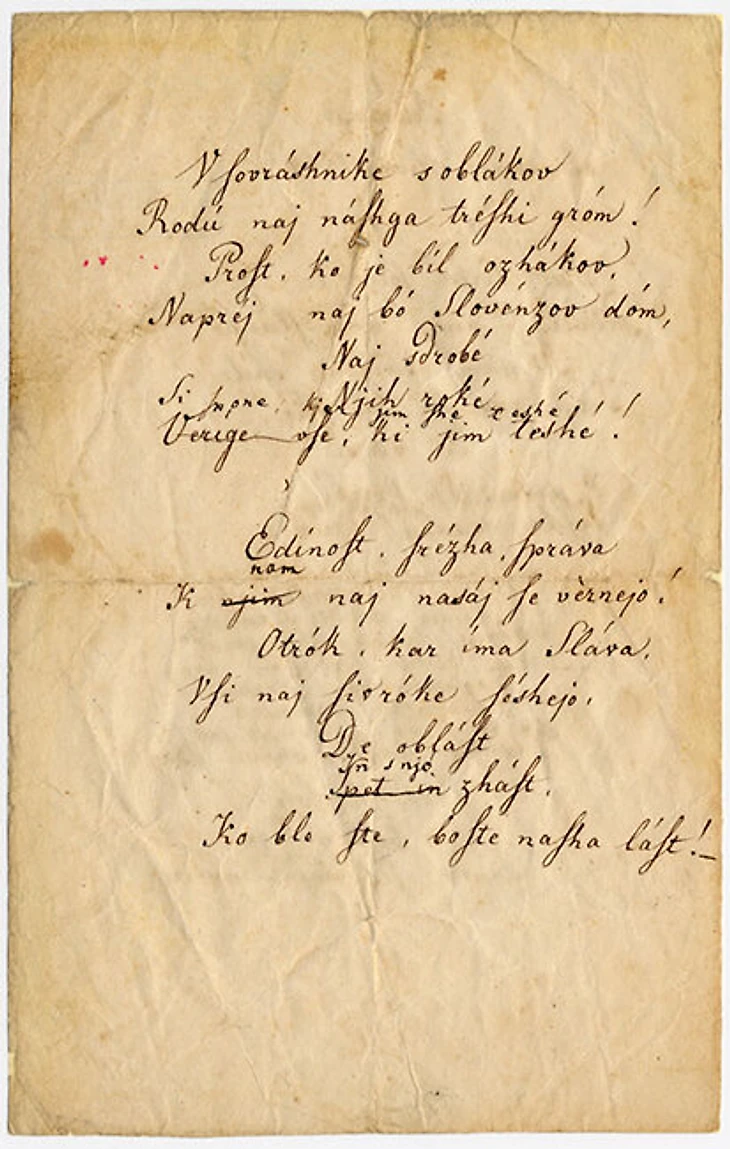 V ſovráshnike s oblákov
Rodú naj náſhga tréſhi gróm!
Proſt, ko je bíl ozhákov,
Naprej naj bó Slovénzov dóm,
Naj sdrobé
Njih roké
Si ſpone, ki jim ſhe teshé
Verige vſe, ki jim teshé!
Edínoſt, ſrézha, ſpráva
nam
K njim naj nasáj ſe vèrnejo!
Otrók, kar íma Sláva,
Vſi naj ſi v róke ſéshejo,
De obláſt
In s njo
Spet in zháſt,
Ko ble ſte, boſte naſha láſt!